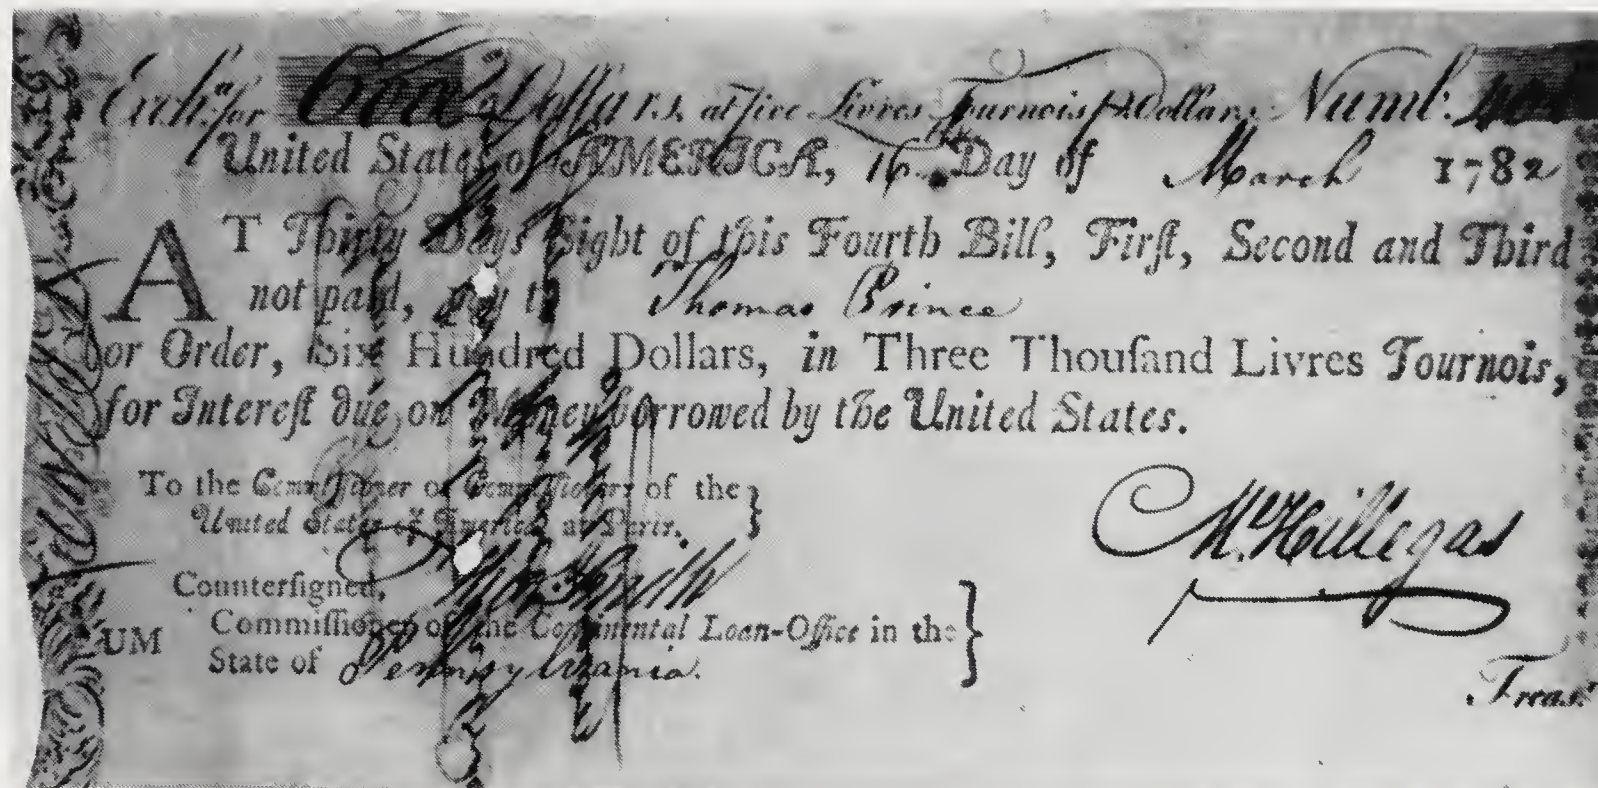 Exch.ᵃ for 600 Dollars, at five Livres Tournois ⅌ Dollar. Numb:
United States of AMERICA, 16 Day of March 1782
AT Thirty Days Sight of this Fourth Bill, Firſt, Second and Third
not paid, pay to Thomas Prince
or Order, Six Hundred Dollars, in Three Thouſand Livres Tournois,
for Intereſt due on Money borrowed by the United States.
To the Commiſſioner or Commiſſioners of the
United States of America, at Paris.
Counterſigned, Thoˢ Smith
UM Commiſſioner of the Continental Loan-Office in the
State of Pennsylvania.
M. Hillegas
Treasʳ